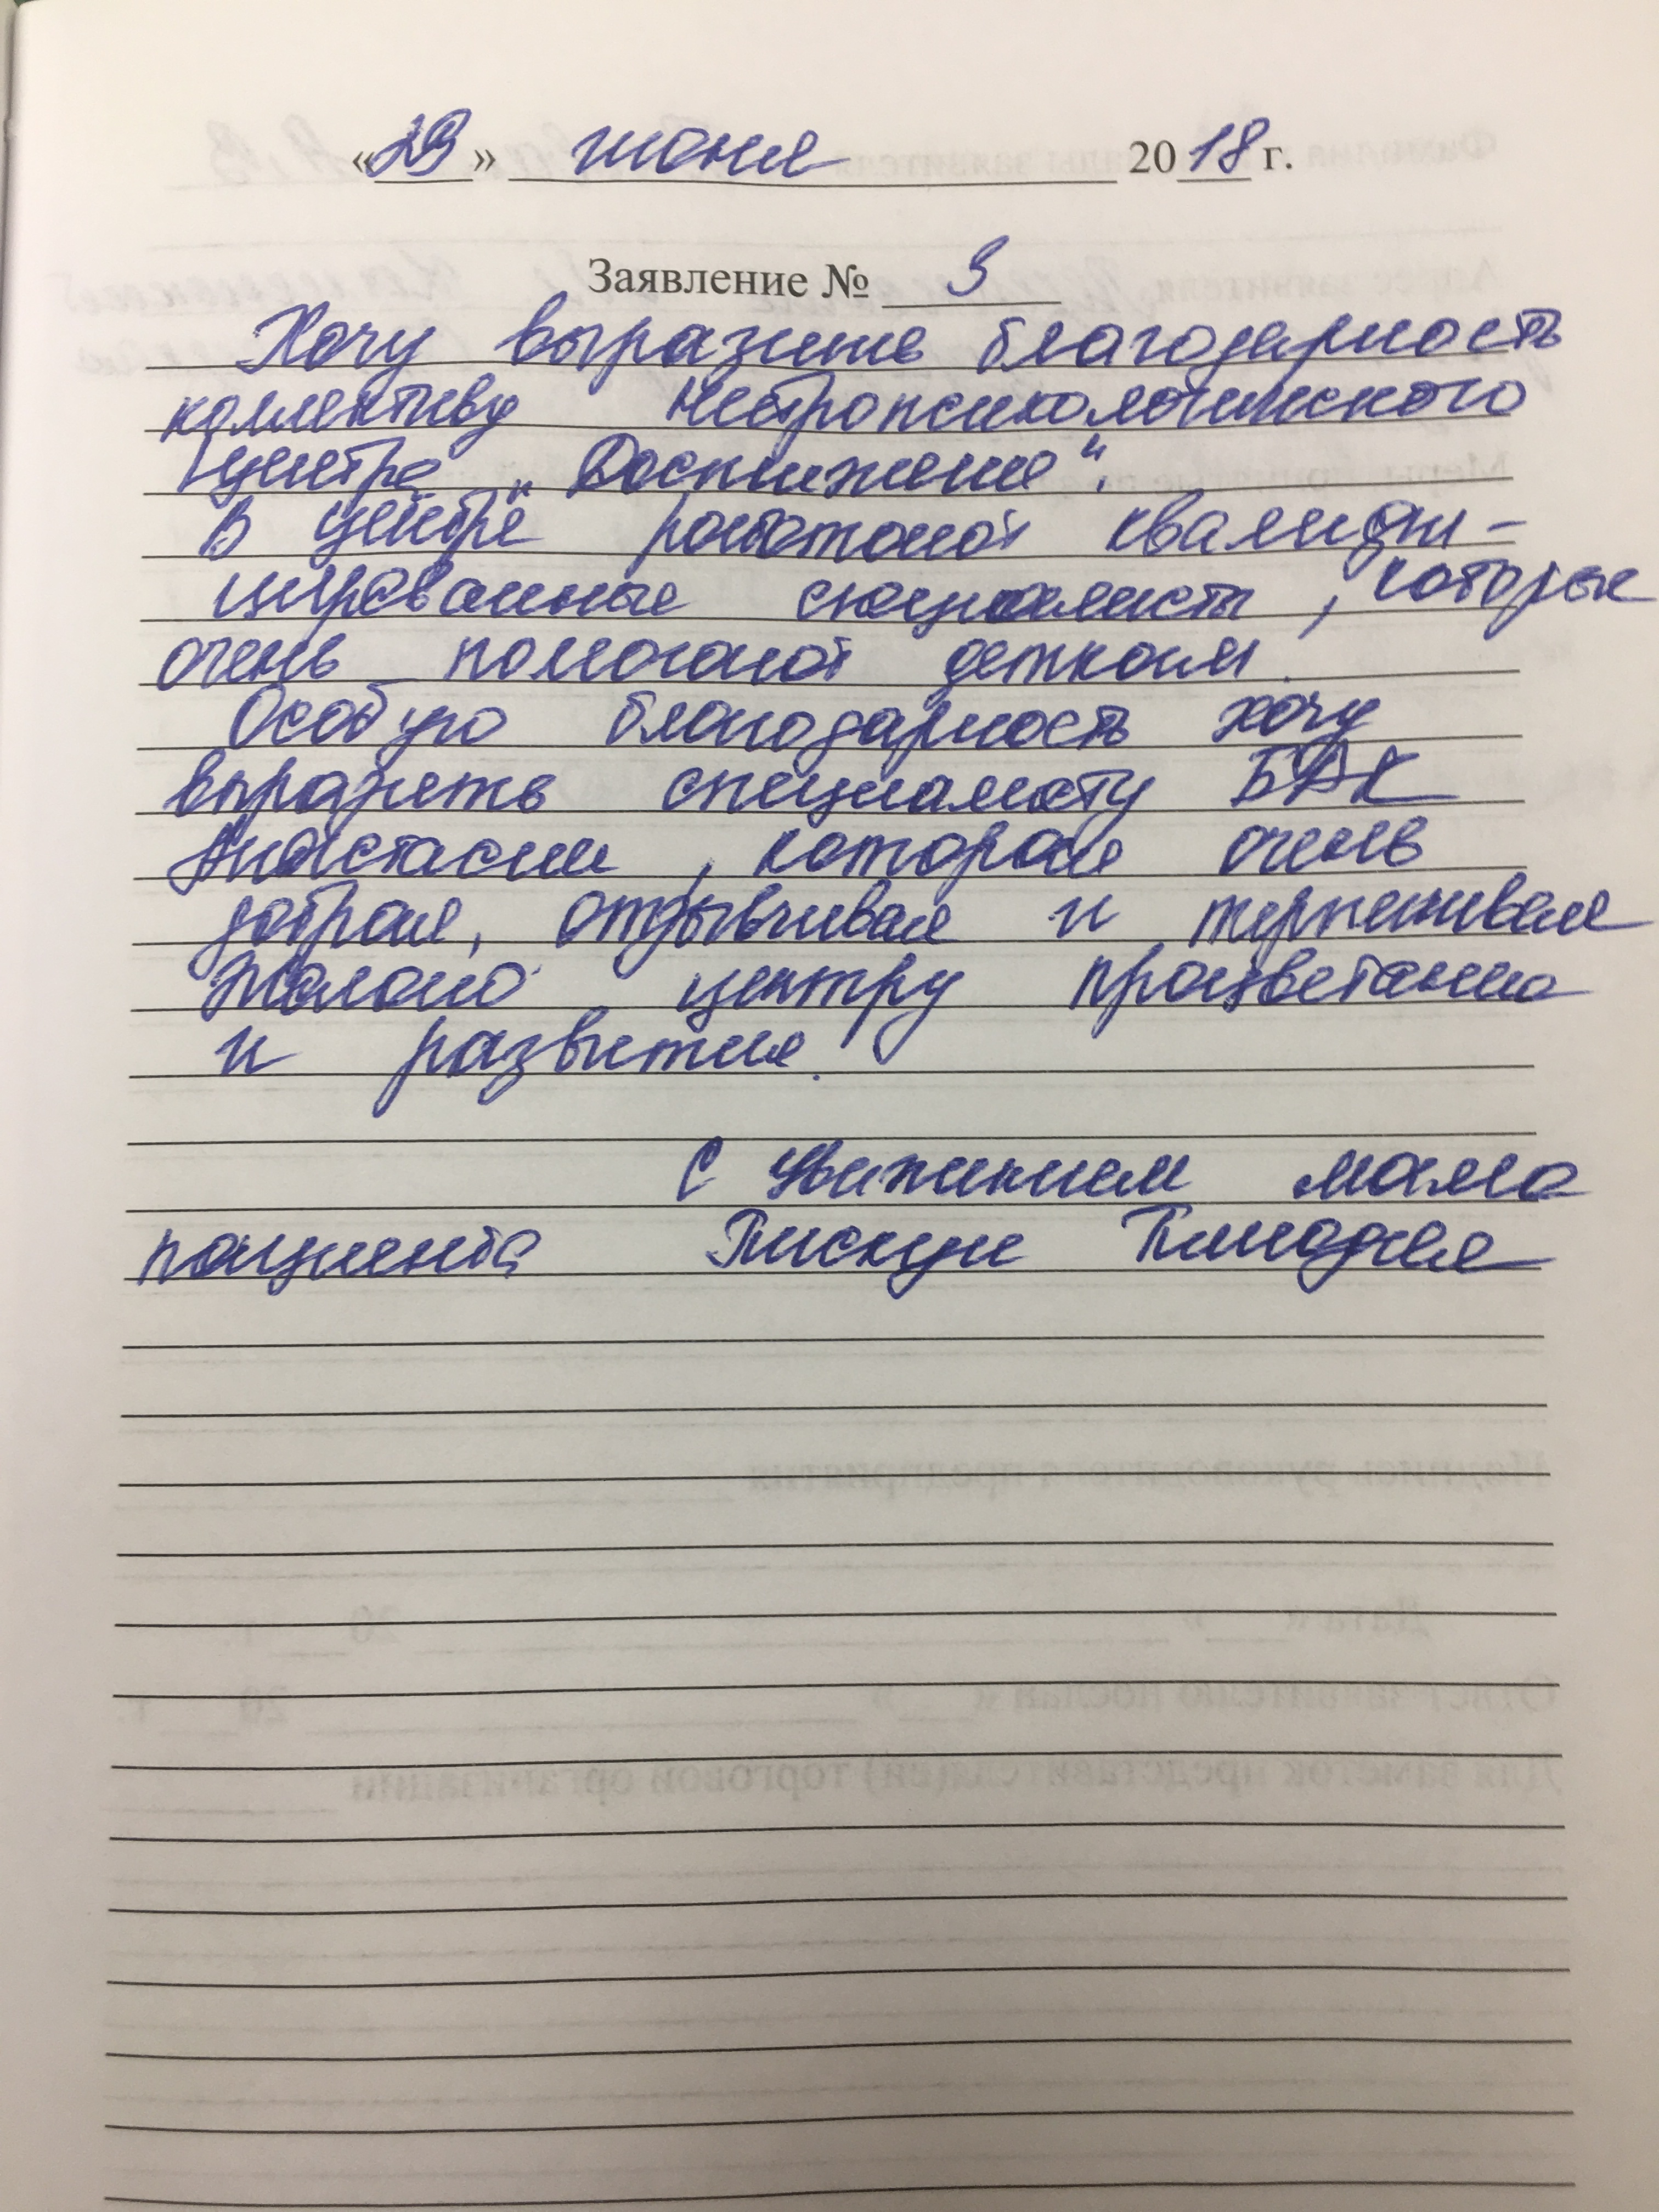 «29» июня 2018 г.
Заявление № 3
Хочу выразить благодарность
коллективу Нейропсихологического
центра „Достижение“.
В центре работают квалифи-
цированные специалисты, которые
очень помогают деткам.
Особую благодарность хочу
выразить специалисту БАК
Анастасии, которая очень
добрая, отзывчивая и терпеливая
Желаю центру процветания
и развития.
С уважением мама
пациента Пискун